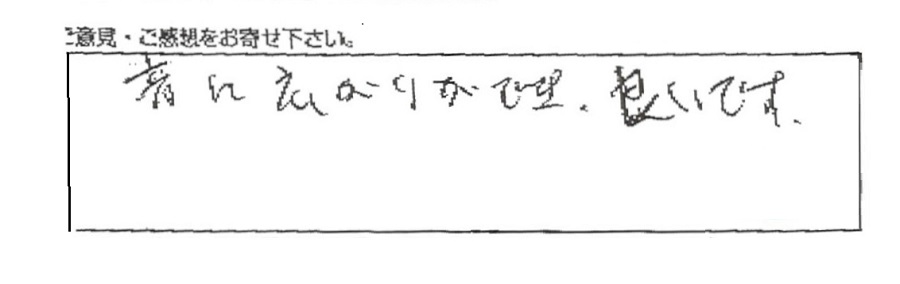 ご意見・ご感想をお寄せ下さい。
音に広がりができ、良いです。